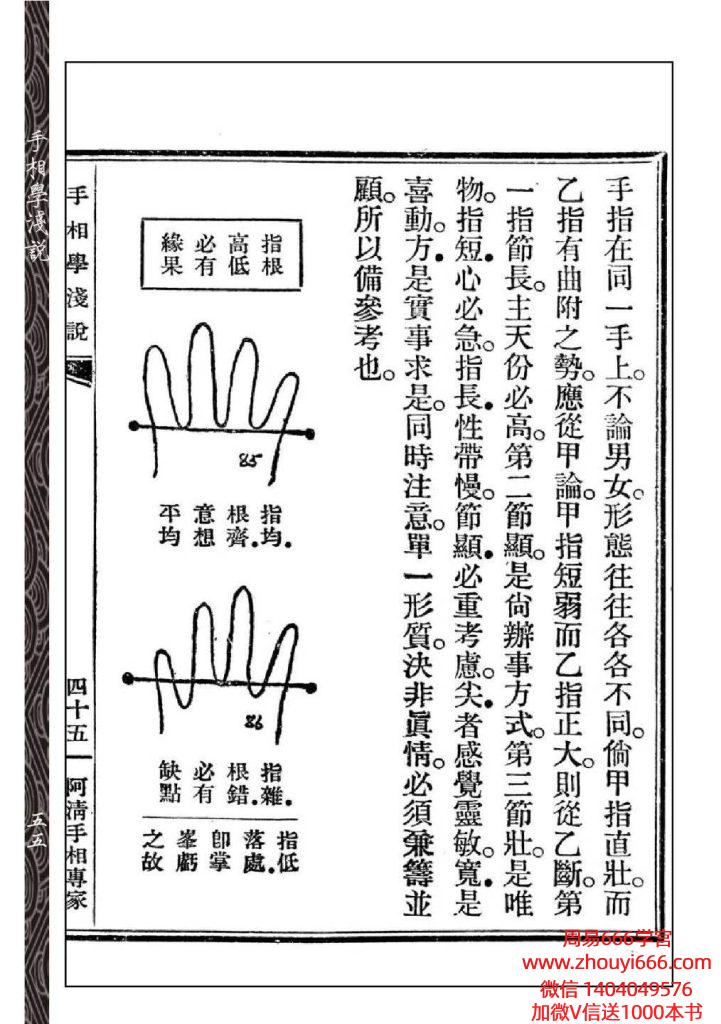 手指在同一手上。不論男女。形態往往各各不同。倘甲指直壯。而
乙指有曲附之勢。應從甲論。甲指短弱而乙指正大。則從乙斷。第
一指節長。主天份必高。第二節顯。是尙辦事方式。第三節壯。是唯
物。指短。心必急。指長。性帶慢。節顯。必重考慮。尖者感覺靈敏。寬是
喜動。方是實事求是。同時注意。單一形質。決非眞情。必須兼籌並
顧。所以備參考也。
指根
高低
必有
緣果
85
指均.
根齊.
意想
平均
86
指雜.
根錯.
必有
缺點
指低
落處.
卽掌
峯虧
之故
手相學淺說
四十五
阿清手相專家
手相學淺説
五五
周易666学宫
www.zhouyi666.com
微信 1404049576
加微V信送1000本书